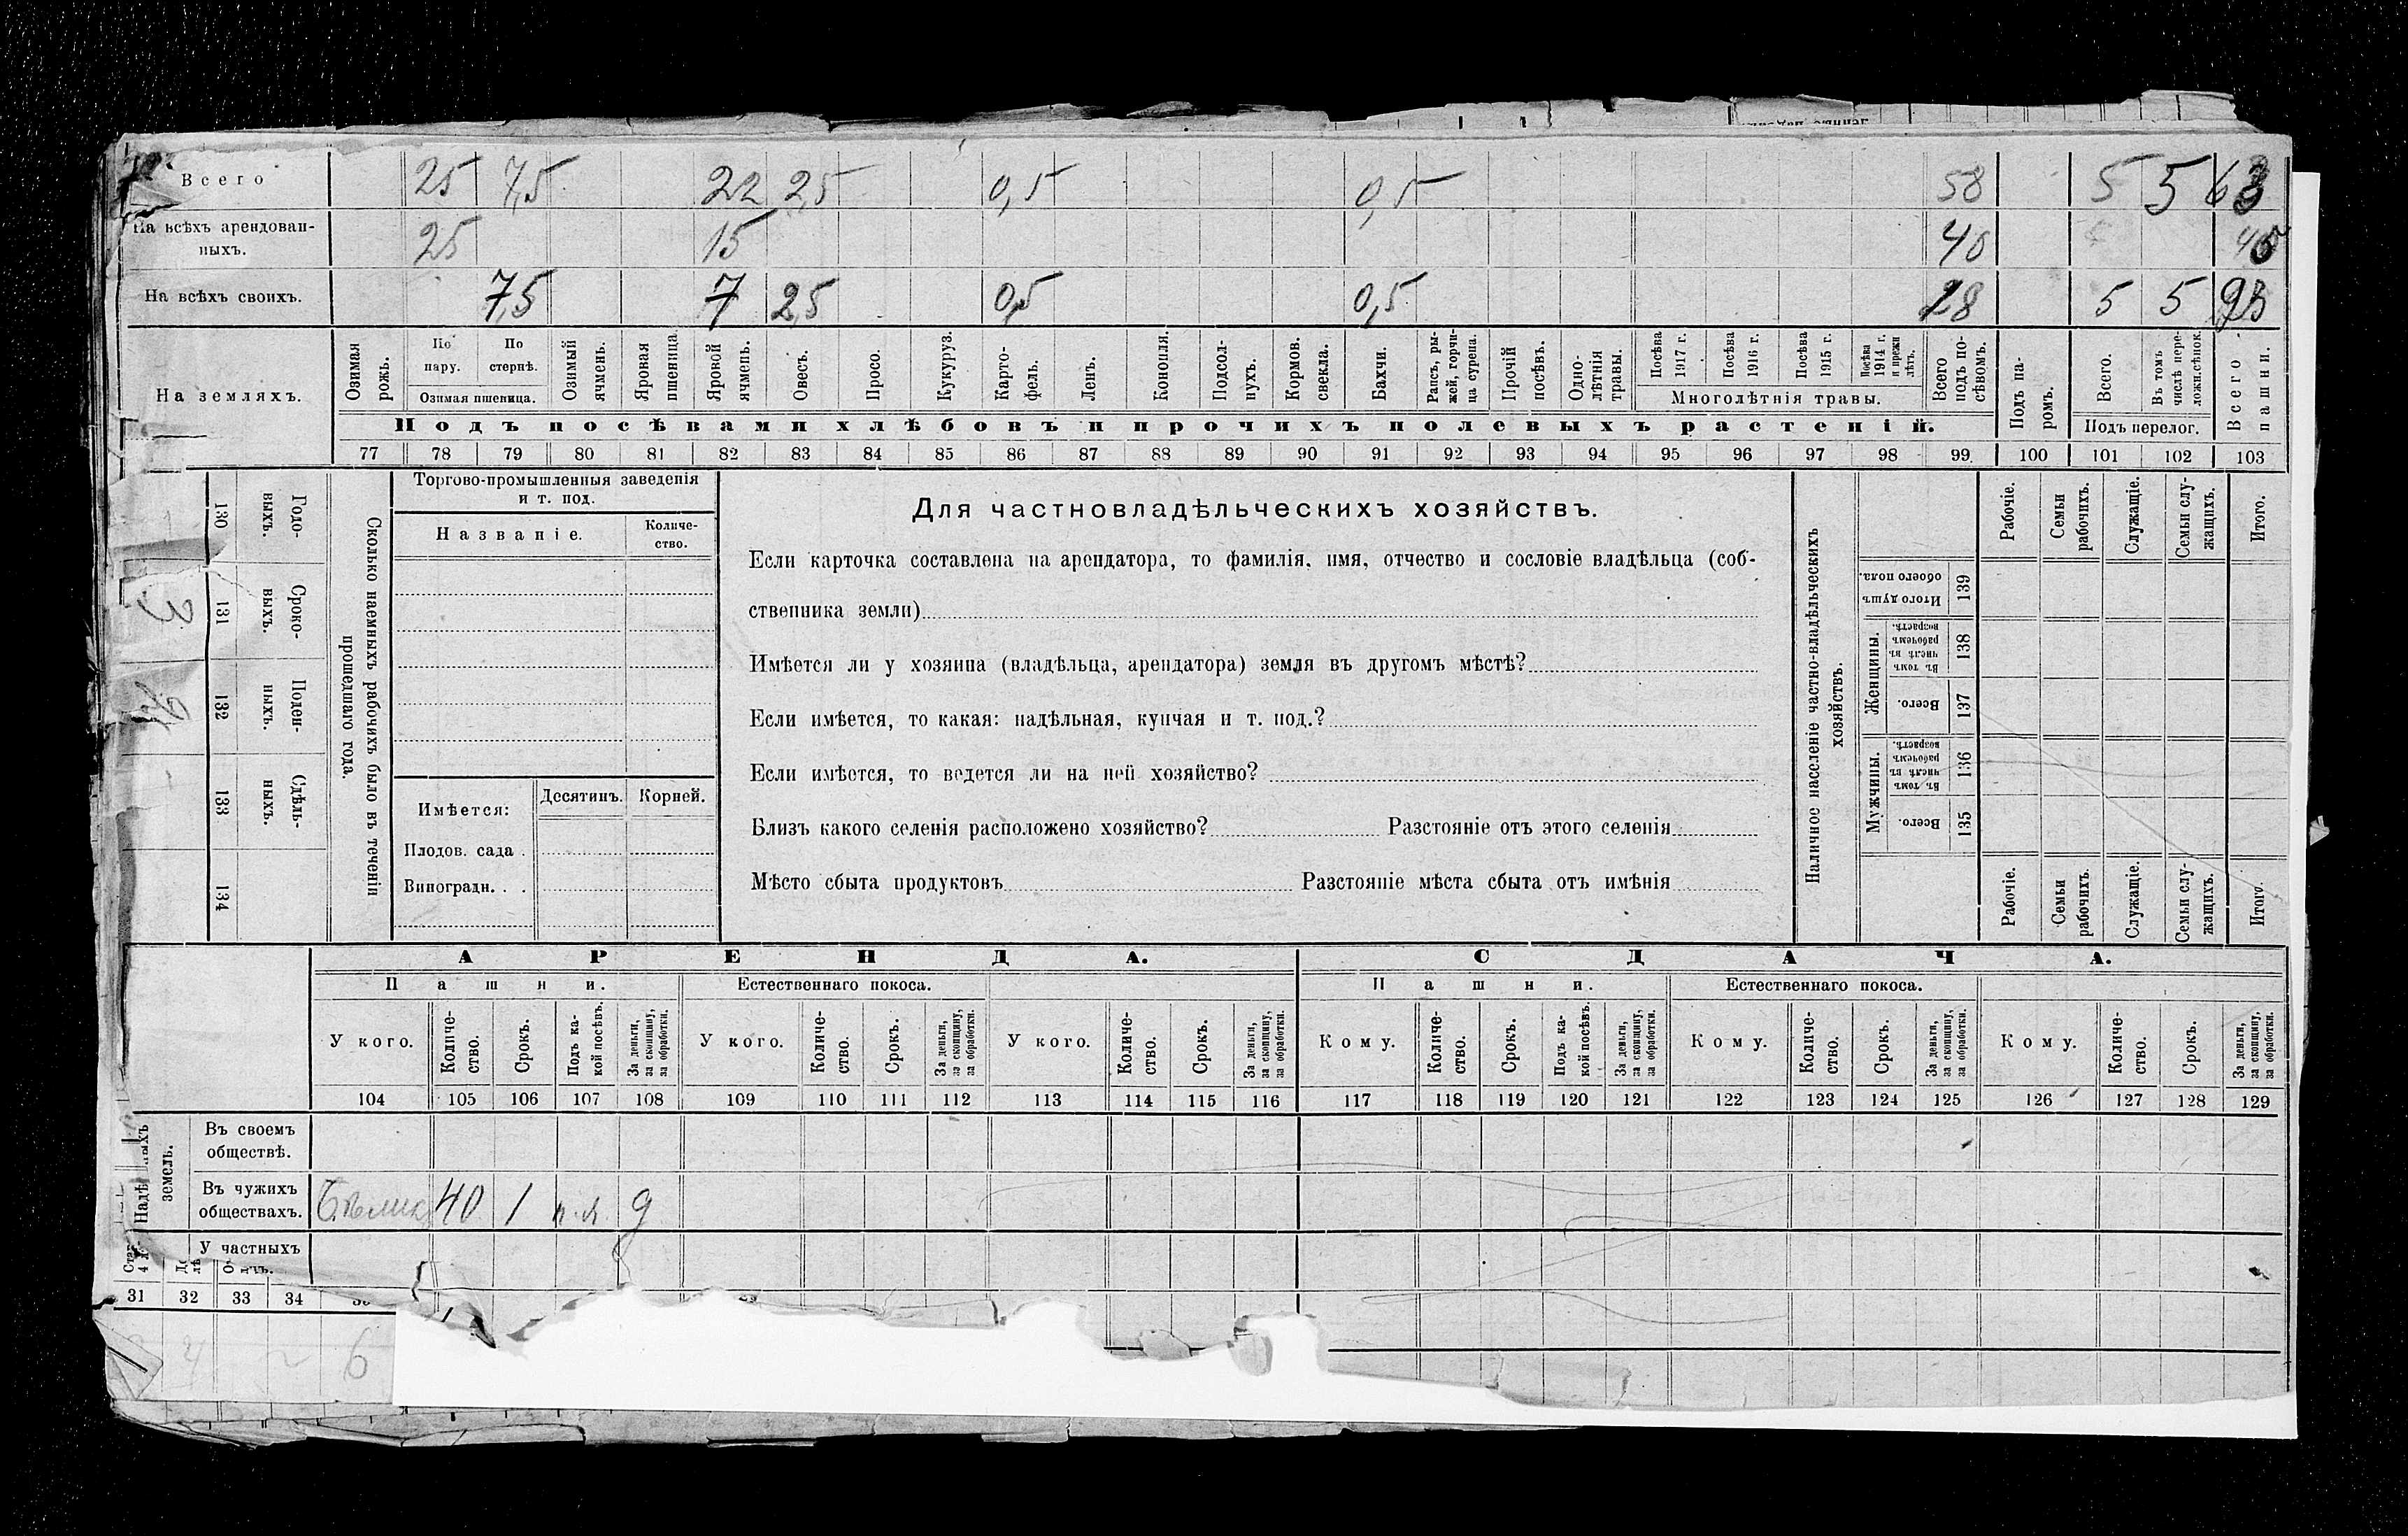 Всего 25 7,5 22 2,5 0,5 0,5 58 5 5 63
На всѣхъ арендованныхъ. 25 15 40 40
На всѣхъ своихъ. 7,5 7 2,5 0,5 0,5 18 5 5
На земляхъ.
Озимая рожь.
По пару.
По стернѣ.
Озимая пшеница.
Озимый ячмень.
Яровая пшеница
Яровой ячмень.
Овесъ.
Просо.
Кукуруз.
Картофель.
Ленъ.
Конопля.
Подсолнухъ.
Кормов. свекла.
Бахчи.
Рапсъ, рыжей, горчица сурепа.
Прочій посѣвъ.
Однолѣтнія травы.
Посѣва 1917 г.
Посѣва 1916 г.
Посѣва 1915 г.
Посѣва 1914 г. и прежн лѣтъ.
Многолѣтнія травы.
Всего подъ посѣвомъ.
Подъ паромъ.
Всего.
Въ томъ числѣ переложн.сѣнок.
Подъ перелог.
Всего пашни.
Подъ посѣвами хлѣбовъ и прочихъ полевыхъ растеній.
77 78 79 80 81 82 83 84 85 86 87 88 89 90 91 92 93 94 95 96 97 98 99 100 101 102 103
Сколько наемныхъ рабочихъ было въ теченіи прошедшаго года.
Годовыхъ. 130
Сроковыхъ. 131 3
Поденныхъ. 132
Сдѣльныхъ. 133
134
Торгово-промышленныя заведенія
и т. под.
Названіе. Количество.
Имѣется: Десятинъ. Корней.
Плодов. сада .
Виноградн. . .
Для частновладѣльческихъ хозяйствъ.
Если карточка составлена на арендатора, то фамилія, имя, отчество и сословіе владѣльца (соб-
ственника земли)
Имѣется ли у хозяина (владѣльца, арендатора) земля въ другомъ мѣстѣ?
Если имѣется, то какая: надѣльная, купчая и т. под.?
Если имѣется, то ведется ли на ней хозяйство?
Близъ какого селенія расположено хозяйство? Разстояніе отъ этого селенія
Мѣсто сбыта продуктовъ Разстояніе мѣста сбыта отъ имѣнія
Наличное населеніе частно-владѣльческихъ хозяйствъ.
Рабочіе. Семьи рабочихъ. Служащіе. Семьи служащихъ. Итого.
Итого душъ обоего пола. 139
Женщины.
Въ томъ числѣ въ рабочемъ возрастѣ. 138
Всего. 137
Мужчины.
Въ томъ числѣ въ рабочемъ возрастѣ. 136
Всего. 135
Рабочіе. Семьи рабочихъ. Служащіе. Семьи служащихъ. Итого.
АРЕНДА. СДАЧА.
Пашни. Естественнаго покоса. Пашни. Естественнаго покоса.
У кого. Количество. Срокъ. Подъ какой посѣвъ. За деньги, за скопщину, за обработки.
У кого. Количество. Срокъ. За деньги, за скопщину, за обработки.
У кого. Количество. Срокъ. За деньги, за скопщину, за обработки.
Кому. Количество. Срокъ. Подъ какой посѣвъ. За деньги, за скопщину, за обработки.
Кому. Количество. Срокъ. За деньги, за скопщину, за обработки.
Кому. Количество. Срокъ. За деньги, за скопщину, за обработки.
104 105 106 107 108 109 110 111 112 113 114 115 116 117 118 119 120 121 122 123 124 125 126 127 128 129
земель.
Въ своемъ обществѣ.
Въ чужихъ обществахъ. 40 1 д
У частныхъ
31 32 33 34
4 6